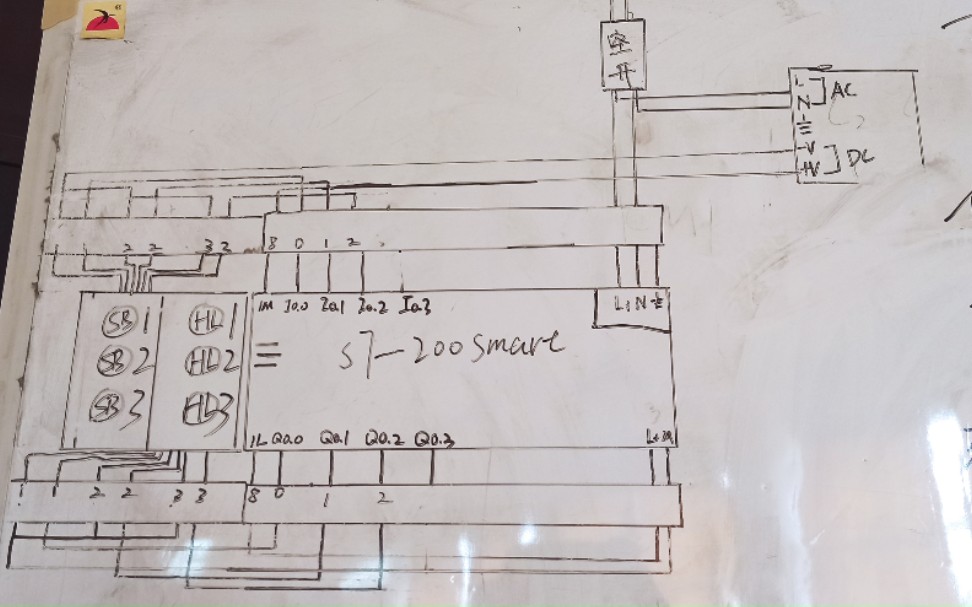 空
开
L
N
AC
-V
+V
DC
1 1 2 2 3 3
8 0 1 2
1M I0.0 I0.1 I0.2 I0.3
L1 N
SB1 HL1
SB2 HL2
SB3 HL3
S7-200 Smart
1L Q0.0 Q0.1 Q0.2 Q0.3
L+ M
1 1 2 2 3 3
8 0 1 2